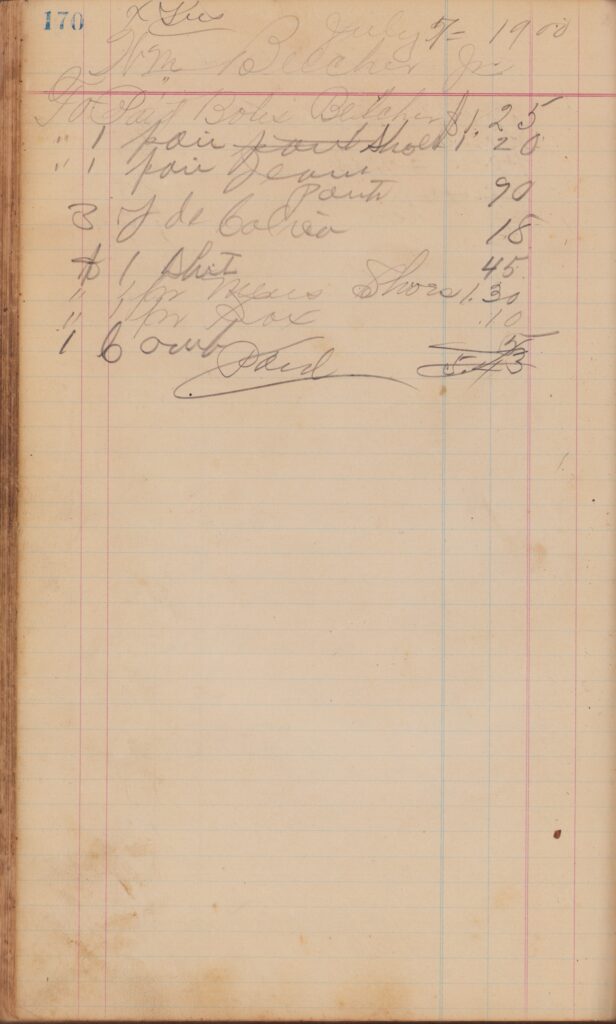 170
July 7= 1900
Wm Belcher Jr
To Paid Bob Belcher $1.25
" 1 pair Shoes 1.20
" 1 pair Jeans
Pants 90
3 Yds Calico 18
1 Shirt 45
" 1 pr Mens Shoes 1.30
" 1 pr Sox .10
1 Comb 5
Paid 5.43